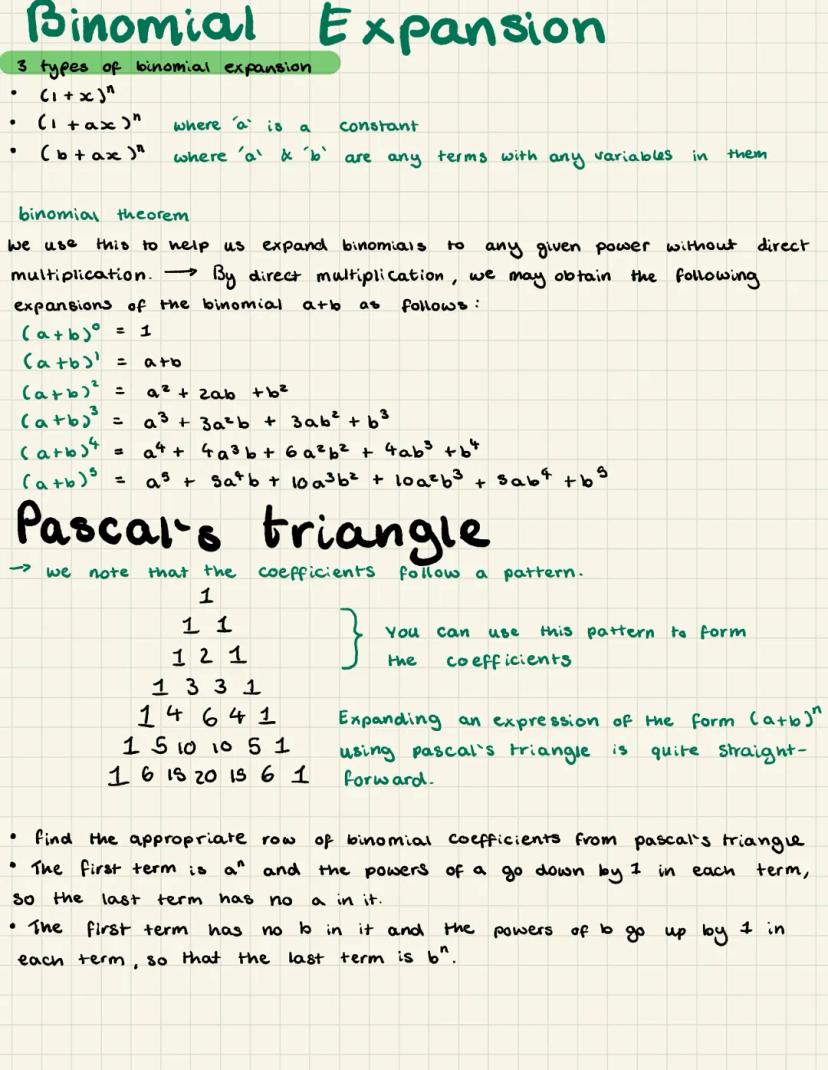 Binomial Expansion
3 types of binomial expansion
• (1+x)ⁿ
• (1 + ax)ⁿ where 'a' is a constant
• (b + ax)ⁿ where 'a' & 'b' are any terms with any variables in them
binomial theorem
We use this to help us expand binomials to any given power without direct
multiplication. → By direct multiplication, we may obtain the following
expansions of the binomial a+b as follows:
(a+b)⁰ = 1
(a+b)¹ = a+b
(a+b)² = a² + 2ab + b²
(a+b)³ = a³ + 3a²b + 3ab² + b³
(a+b)⁴ = a⁴ + 4a³b + 6a²b² + 4ab³ + b⁴
(a+b)⁵ = a⁵ + 5a⁴b + 10a³b² + 10a²b³ + 5ab⁴ + b⁵
Pascal's triangle
→ we note that the coefficients follow a pattern.
1
1 1
1 2 1
You can use this pattern to form
the coefficients
1 3 3 1
1 4 6 4 1
1 5 10 10 5 1
1 6 15 20 15 6 1
Expanding an expression of the form (a+b)ⁿ
using pascal's triangle is quite straight-
forward.
• find the appropriate row of binomial coefficients from pascal's triangle
• The first term is aⁿ and the powers of a go down by 1 in each term,
so the last term has no a in it.
• The first term has no b in it and the powers of b go up by 1 in
each term, so that the last term is bⁿ.